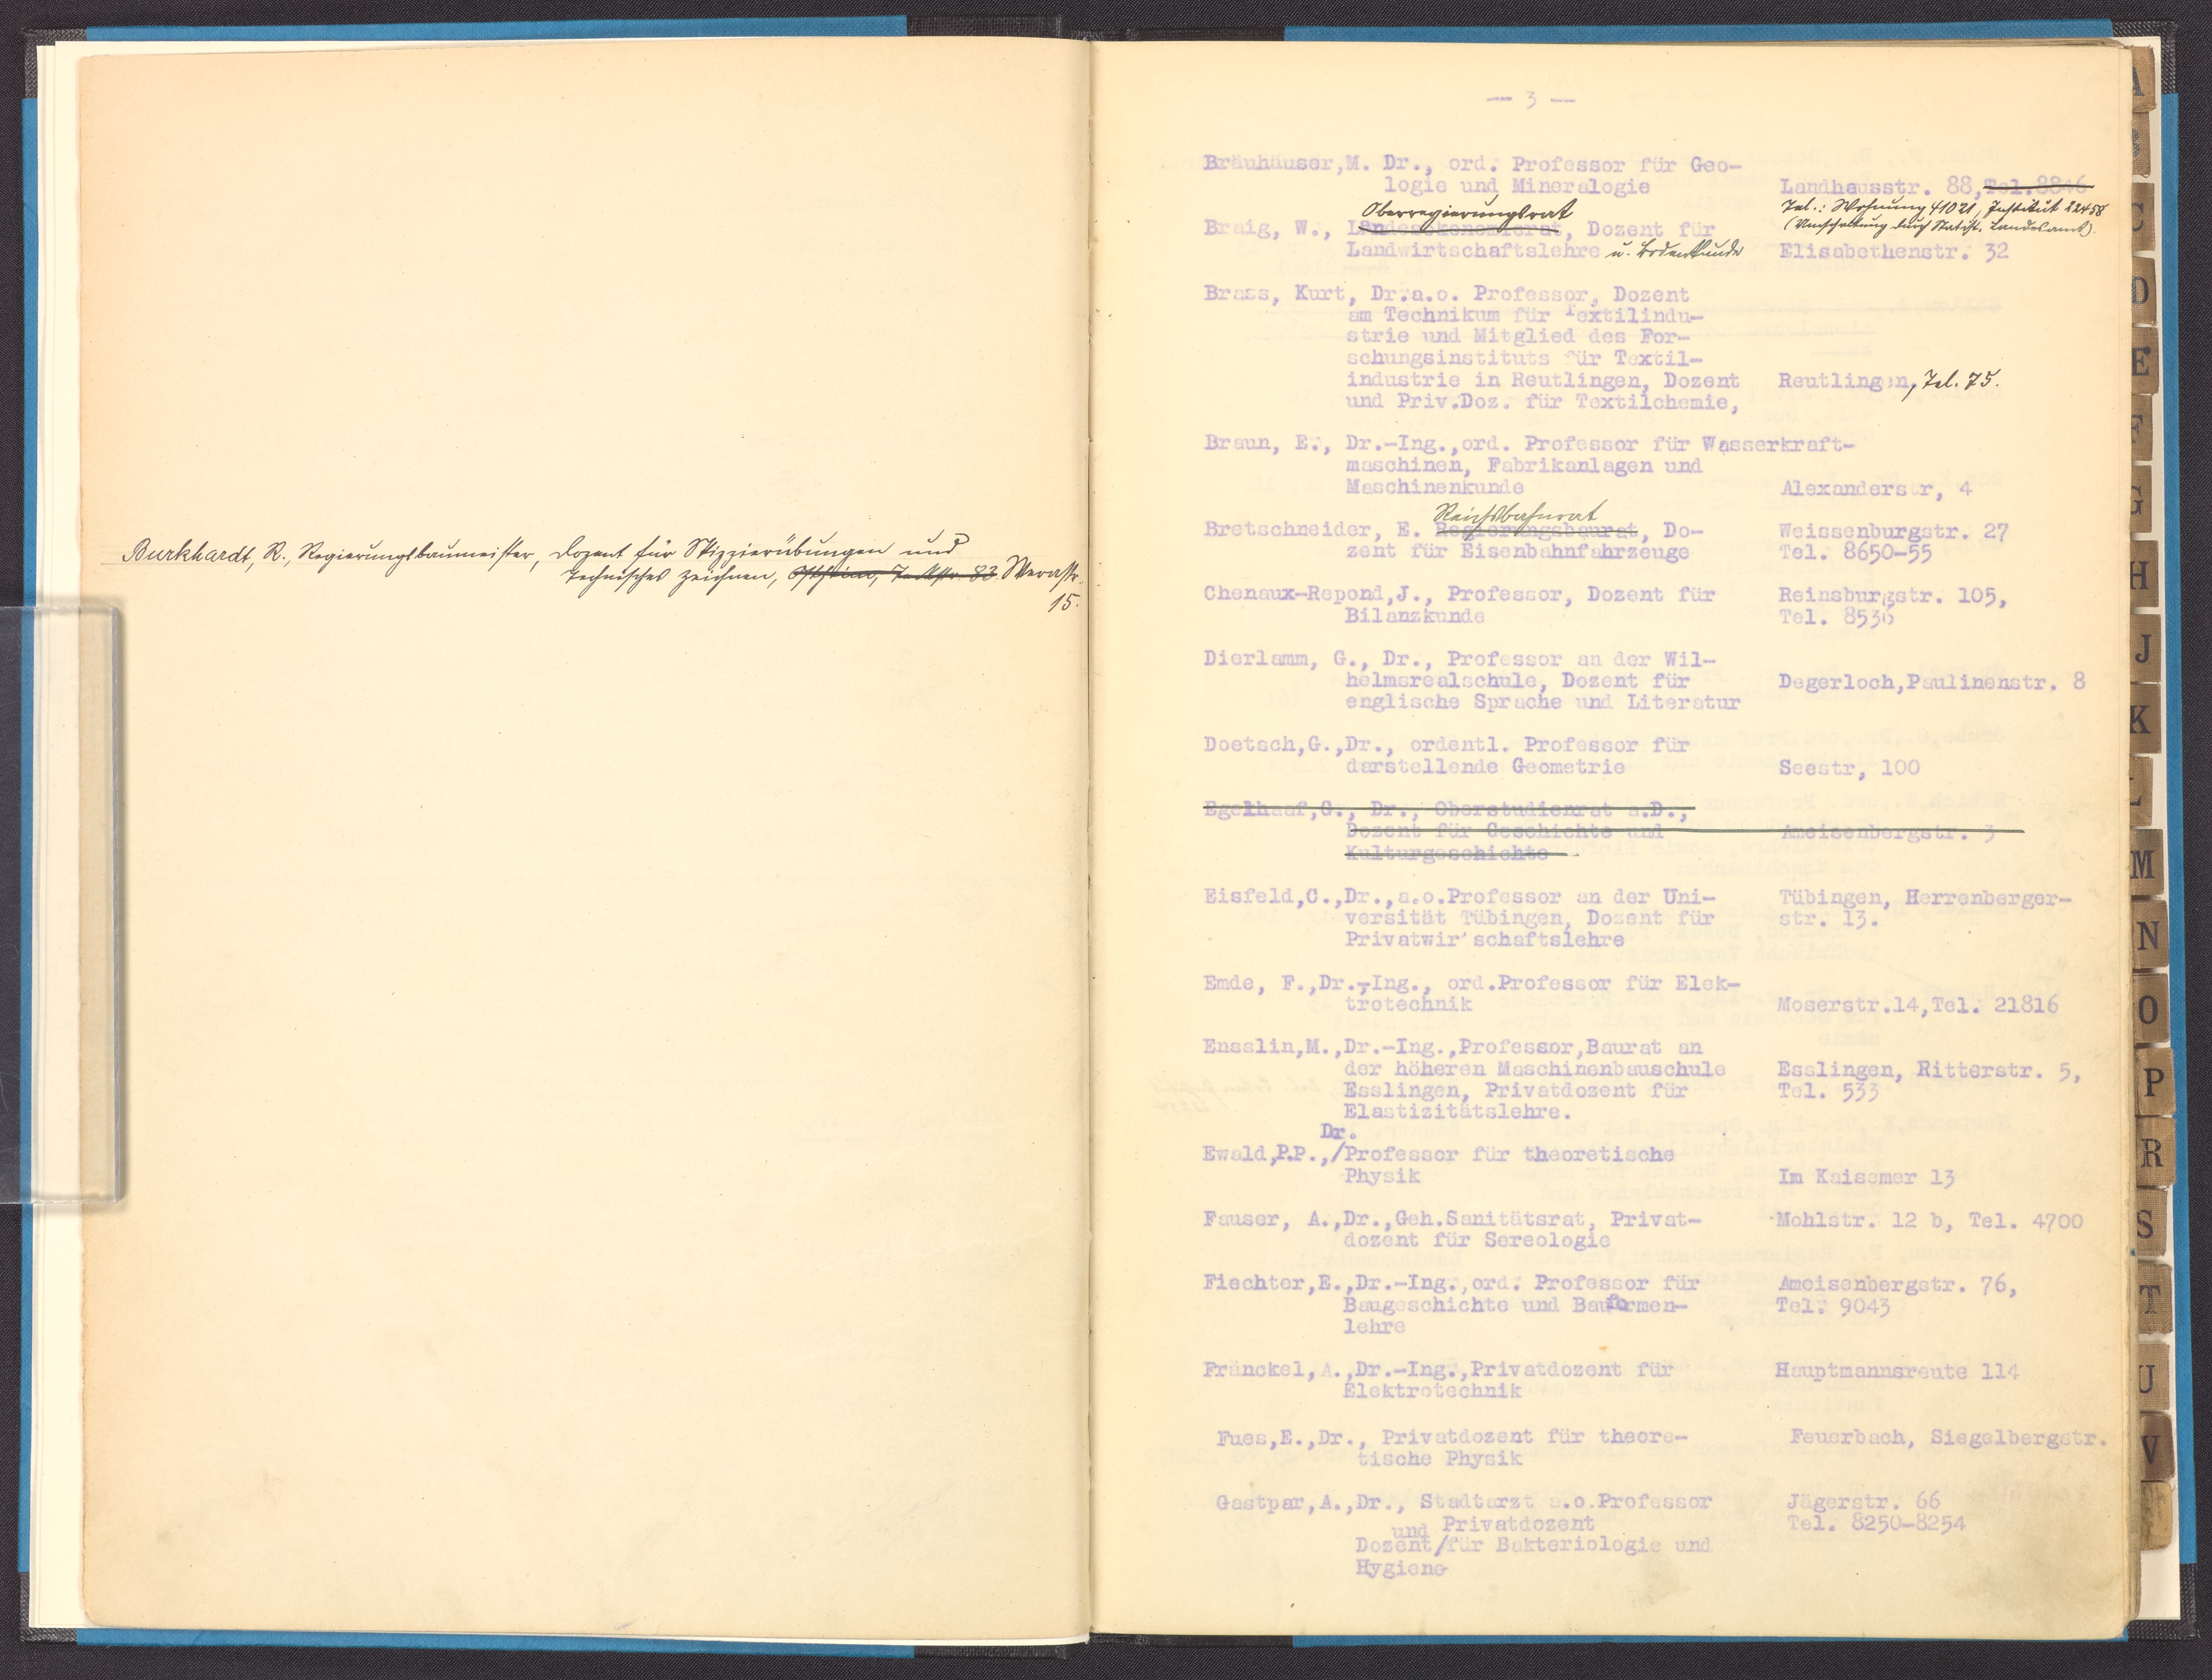 Burkhardt, R., Regierungsbaumeister, Dozent für Skizzierübungen und
technisches Zeichnen, Ostheim, Teckstr. 83 Werastr.
15.
— 3 —
Bräuhäuser,M. Dr., ord. Professor für Geo-
logie und Mineralogie
Landhausstr. 88, Tel.8846
Tel.: Wohnung 41021, Institut 22458
(Umschaltung durch Statist. Landesamt).
Oberregierungsrat
Braig, W., Landesökonomierat, Dozent für
Landwirtschaftslehre u. Bodenkunde
Elisabethenstr. 32
Brass, Kurt, Dr.a.o. Professor, Dozent
am Technikum für Textilindu-
strie und Mitglied des For-
schungsinstituts für Textil-
industrie in Reutlingen, Dozent
und Priv.Doz. für Textilchemie,
Reutlingen, Tel. 75.
Braun, E., Dr.-Ing.,ord. Professor für Wasserkraft-
maschinen, Fabrikanlagen und
Maschinenkunde
Alexanderstr, 4
Reichsbahnrat
Bretschneider, E. Regierungsbaurat, Do-
zent für Eisenbahnfahrzeuge
Weissenburgstr. 27
Tel. 8650-55
Chenaux-Repond,J., Professor, Dozent für
Bilanzkunde
Reinsburgstr. 105,
Tel. 8536
Dierlamm, G., Dr., Professor an der Wil-
helmsrealschule, Dozent für
englische Sprache und Literatur
Degerloch,Paulinenstr. 8
Doetsch,G.,Dr., ordentl. Professor für
darstellende Geometrie
Seestr, 100
Egelhaaf,G., Dr., Oberstudienrat a.D.,
Dozent für Geschichte und
Kulturgeschichte
Ameisenbergstr. 3
Eisfeld,C.,Dr.,a.o.Professor an der Uni-
versität Tübingen, Dozent für
Privatwirtschaftslehre
Tübingen, Herrenberger-
str. 13.
Emde, F.,Dr.-Ing., ord.Professor für Elek-
trotechnik
Moserstr.14,Tel. 21816
Ensslin,M.,Dr.-Ing.,Professor,Baurat an
der höheren Maschinenbauschule
Esslingen, Privatdozent für
Elastizitätslehre.
Esslingen, Ritterstr. 5,
Tel. 533
Dr.
Ewald,P.P.,/Professor für theoretische
Physik
Im Kaisemer 13
Fauser, A.,Dr.,Geh.Sanitätsrat, Privat-
dozent für Sereologie
Mohlstr. 12 b, Tel. 4700
Fiechter,E.,Dr.-Ing.,ord. Professor für
Baugeschichte und Bauformen-
lehre
Ameisenbergstr. 76,
Tel. 9043
Fränckel,A.,Dr.-Ing.,Privatdozent für
Elektrotechnik
Hauptmannsreute 114
Fues,E.,Dr., Privatdozent für theore-
tische Physik
Feuerbach, Siegelbergstr.
Gastpar,A.,Dr., Stadtarzt a.o.Professor
und Privatdozent
Dozent/für Bakteriologie und
Hygiene
Jägerstr. 66
Tel. 8250-8254
A
B
C
D
E
F
G
H
J
K
L
M
N
O
P
R
S
T
U
V